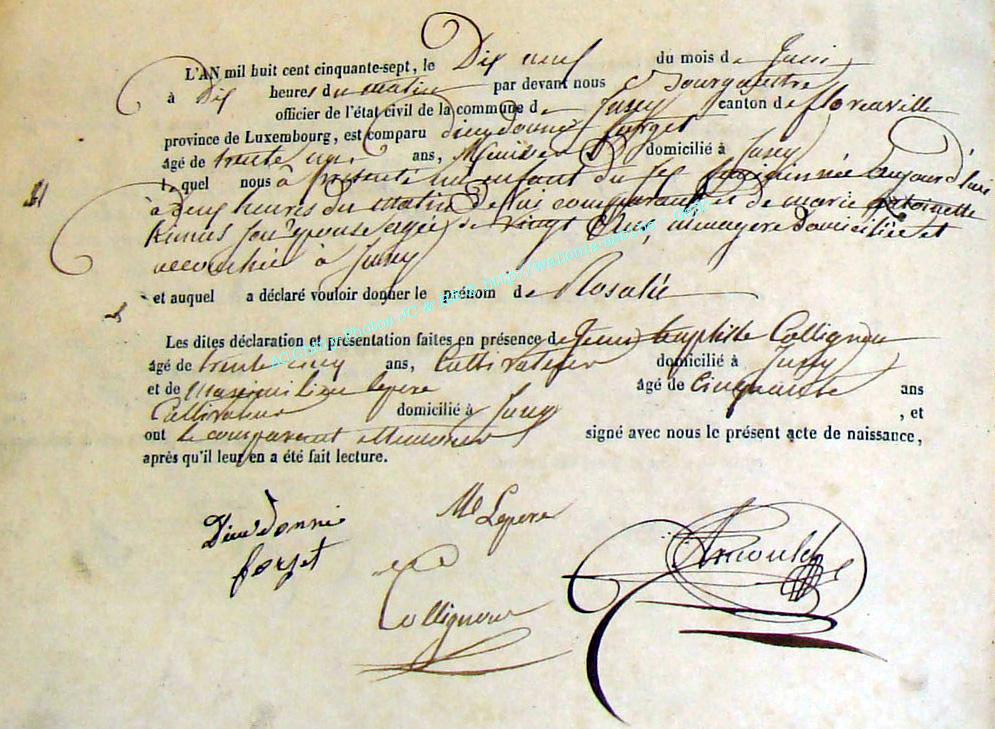 L'AN mil huit cent cinquante-sept, le Dix neuf du mois de Juin
à Dix heures du matin par devant nous Bourgmestre
officier de l'état civil de la commune de Jamoigne canton de florenville
province de Luxembourg, est comparu dieudonné forget
âgé de trente ans, domicilié à
le quel nous à présenté un enfant du sexe féminin née aujourd'hui
à deux heures du matin de lui comparant et de marie antoinette
son épouse agée de vingt ans, menagère domiciliée et
accouchée à
et auquel a déclaré vouloir donner le prénom de Rosalie
Les dites déclaration et présentation faites en présence de Jean baptiste Collignon
âgé de trente cinq ans, Cultivateur domicilié à
et de maximilien lepere âgé de Cinquante ans
Cultivateur domicilié à , et
ont le comparant et temoins signé avec nous le présent acte de naissance,
après qu'il leur en a été fait lecture.
Dieudonné Me Lepere
forget Arnould
Collignon